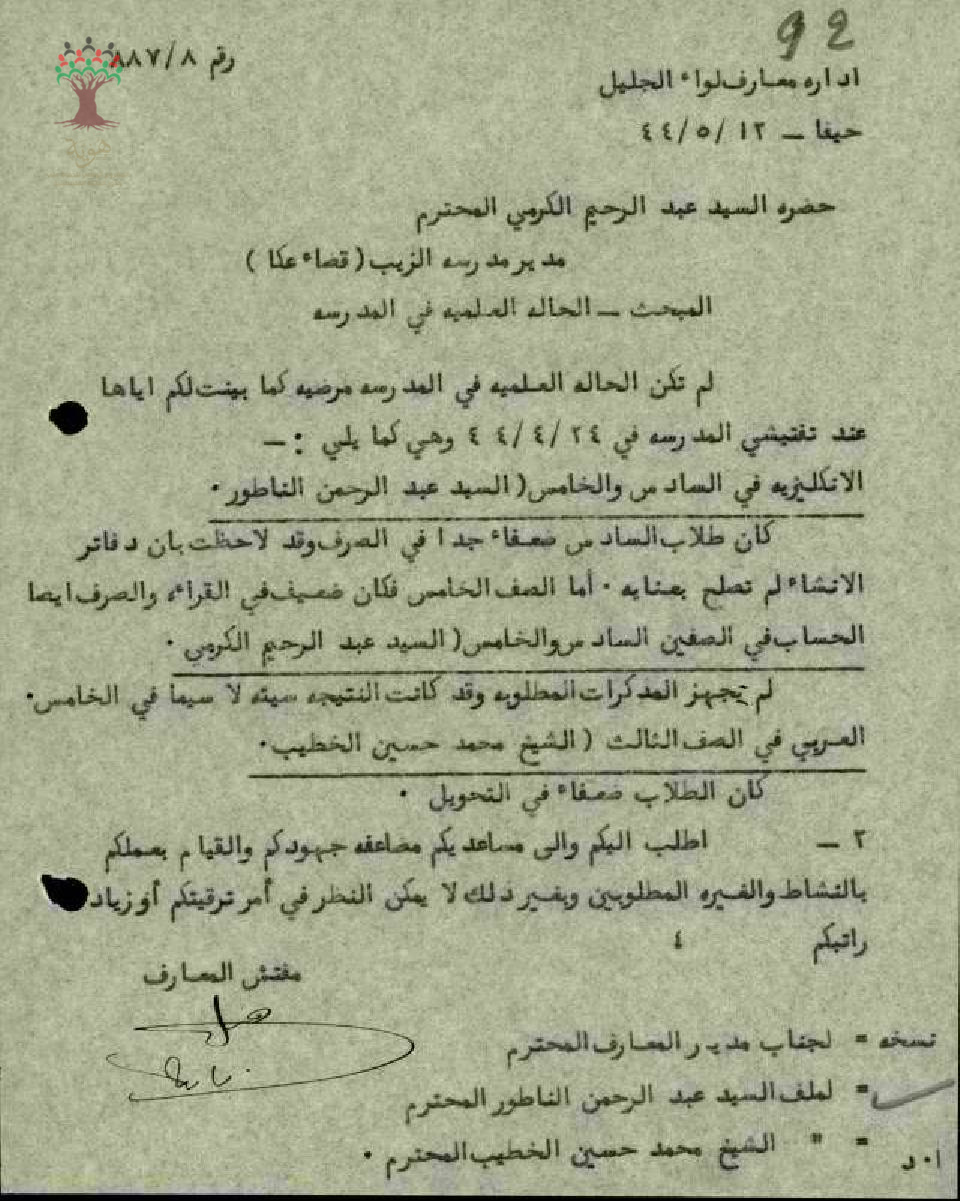 92
رقم ٨/٨٨٧
اداره معارف لواء الجليل
حيفا – ١٢ /٤٤/٥
حضره السيد عبد الرحيم الكرمي المحترم
مدير مدرسه الزيب (قضاء عكا )
المبحث – الحاله العلميه في المدرسه
لم تكن الحاله العلميه في المدرسه مرضيه كما بينت لكم اياها
عند تفتيشي المدرسه في ٢٤ /٤ /٤٤ وهي كما يلي :–
الانكليزيه في السادس والخامس( السيد عبد الرحمن الناطور .
كان طلاب السادس ضعفاء جدا في الصرف وقد لاحظت بان دفاتر
الانشاء لم تصلح بعنايه . أما الصف الخامس فكان ضعيف في القراءه والصرف ايضا
الحساب في الصفين السادس والخامس( السيد عبد الرحيم الكرمي .
لم يجهز المذكرات المطلوبه وقد كانت النتيجه سيئه لا سيما في الخامس.
العربي في الصف الثالث ( الشيخ محمد حسين الخطيب .
كان الطلاب ضعفاء في التحويل .
٢ – اطلب اليكم والى مساعديكم مضاعفه جهودكم والقيام بعملكم
بالنشاط والغيره المطلوبين وبغير ذلك لا يمكن النظر في أمر ترقيتكم أو زياد
راتبكم ٤
مفتش المعارف
نسخه = لجناب مدير المعارف المحترم
= لملف السيد عبد الرحمن الناطور المحترم
= " الشيخ محمد حسين الخطيب المحترم .
ا.د
هوية